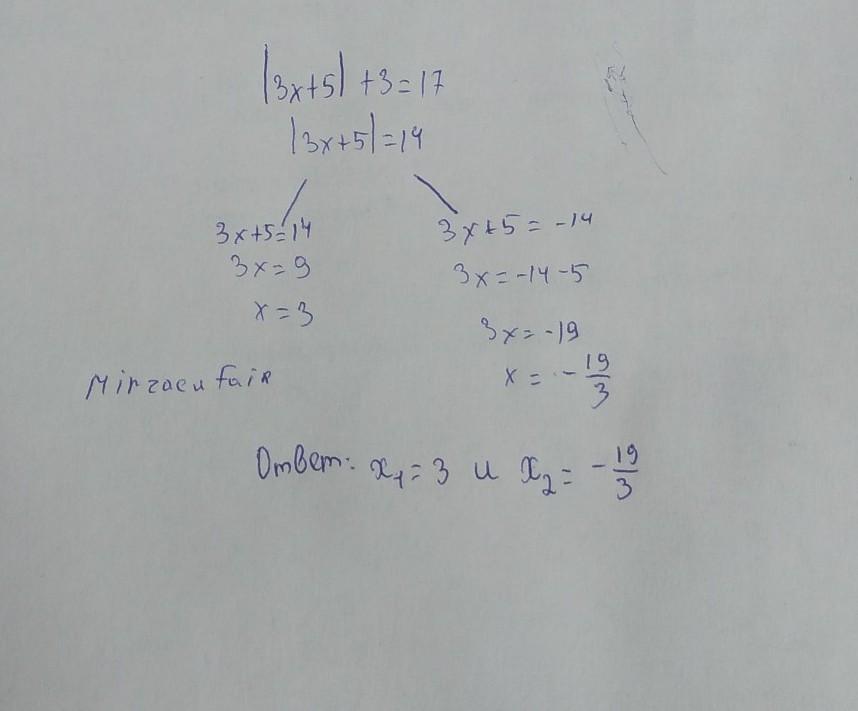 |3x+5| +3=17
|3x+5|=14
3x+5=14
3x=9
x=3
3x+5=-14
3x=-14-5
3x=-19
x=-19/3
Mirzaeu fair
Ответ: x₁=3 и x₂=-19/3